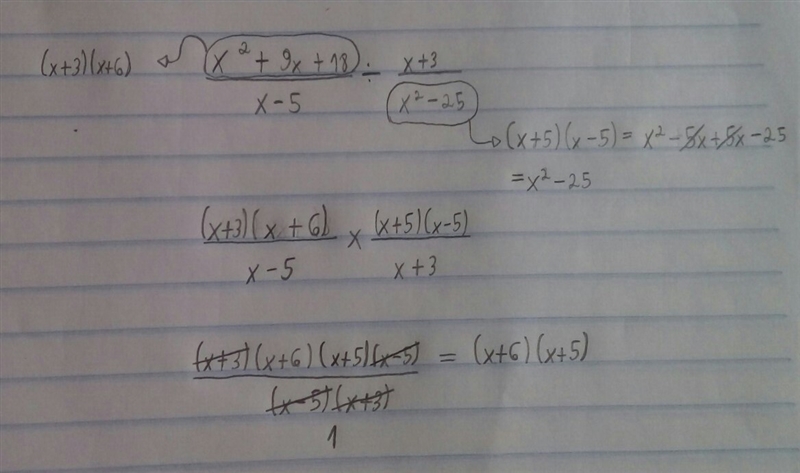 (x+3)(x+6) x² + 9x + 18 / x - 5 ÷ x+3 / x² - 25
(x+5)(x-5) = x² - 5x + 5x - 25
= x² - 25
(x+3)(x+6) / x - 5 x (x+5)(x-5) / x + 3
(x+3)(x+6)(x+5)(x-5) / (x-5)(x+3) = (x+6)(x+5)
1